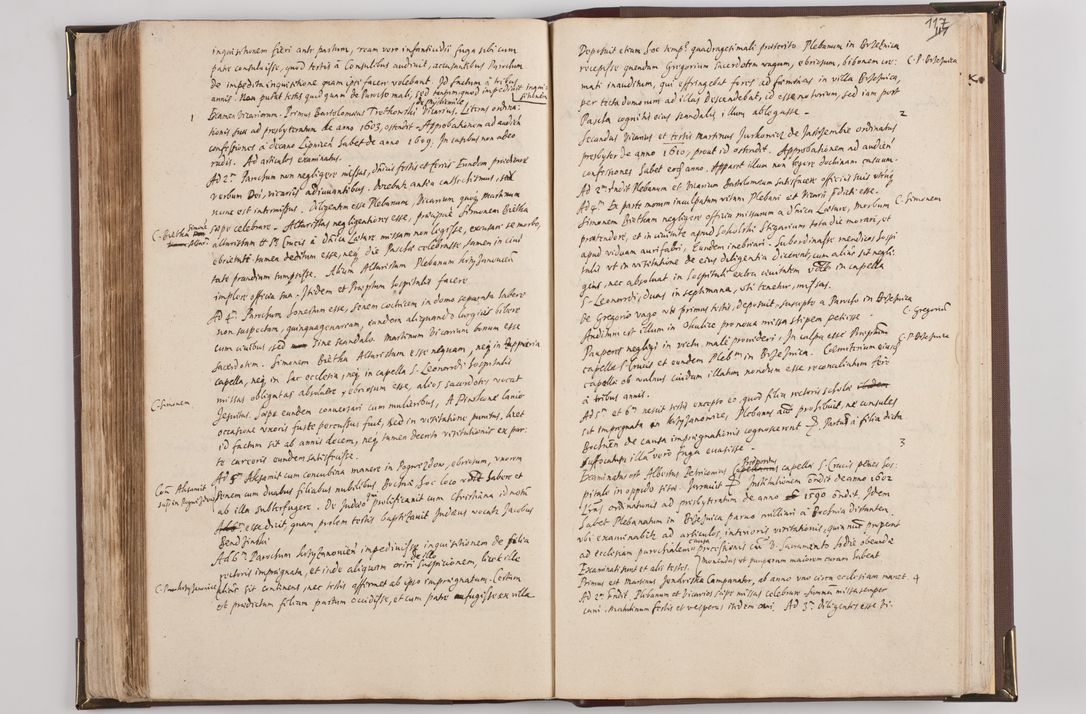 inquisitionem fieri ante partum, ream vero infanticidii fuga sibi cum
patre consuluisse, quod testis à Consulibus audivit, accusantibus Parochum
de impedita inquisitione quam ipsi facere volebant. Id factum à tribus
annis. Non putat testis quid quam de Parocho mali, sed tantum quod impedivit inqui-
sitionem
1
Examen Vicariorum. Primus Bartolomeus Vicarius. Literas ordina-
tionis suae ad presbyteratum de anno 1603, ostendit. Approbationem ad audien
confessiones à Decano Lipnicen habet de anno 1609. In casibus non adeo
rudis. Ad articulos examinatus.
Ad 2m Parochum non negligere missas, diebus festis et feriis. Eundem praedicare
verbum Dei, vicariis adiuvantibus. Docebat antea catechismus,
nunc est intermissus. Diligentem esse Plebanum, Vicarium quoque Martinum
C. Bietka Simone
saepe celebrare. Altaristas negligentiores esse, praecipue Simonem Bietka
altaristam S. Crucis à Dnica Laetare missam non legisse, excusare se morbo,
ebrietati tamen deditum esse, neque die Paschae celebrasse, tamen in civi
tate prandium sumpsisse. Alium Altaristam Plebanum Krzyzanovicen
implere officia sua. Itidem et Praepositum hospitalis facere.
Ad 4m Parochum honestum esse, senem coctricem in domo separata habere
non suspectam, quinquagenariam, eundem aliquando largius bibere
cum civibus, sed sine scandalo. Martinum Vicarium bonum esse
sacerdotem. Simonem Bietka Altaristam esse nequam, neque in
capella, neque in hac ecclesia, neque in capella S. Leonardi hospitalis
missas obligatas absolvere, ebriosum esse, alios sacerdotes vocat
C. Simonem
Jesuitas. Saepe eundem conversari cum mulieribus, à lanio
occasione uxoris fuste percussus fuit, sed in visitatione punitus, licet
id factum sit ab annis decem, neque tamen decreto visitationis ex par-
te carceris eundem satisfecisse.
Ad 5m Aksamit cum concubina manere in Pogwizdow, ebriosum, uxorem
senem cum duabus filiabus nubilibus Bochniae hoc loco habere et
ab illa subterfugere. De Judaeo prolificanti cum Christiana id notum
esse dicit, quam prolem testis baptisavit Judaeus vocatus Jacobus
Bendzinski
Ad 6m Parochum Krzyzanovicen impedivisse inquisitionem de filia
rectoris impregnata, et inde aliquam oriri de illo suspicionem, licet ille
alias sit continens, nec testis affirmet ab ipso impregnatam. Certum
est praedictam filiam partum occidisse, et cum patre aufugisse ex villa
117
Deposuit etiam hoc tempore quadragesimali praeterito. Plebanum in Brzeznica
C. P. Brzeznica
recepisse quendam Gregorium sacerdotem vagum, ebriosum, bibonem cre-
mati inauditum, qui effringebat fores ad foeminas in villa Brzeznica,
per tecta domorum ad illas descendebat, id esse notorium, sed iam post
Pascha cogniti eius scandalis illum ablegasse.
2
Secundus Vicarius et testis Martinus Jurkowicz de Jastrzembie ordinatus
presbyter de anno 1610, prout id ostendit. Approbationem ad audien
confessiones habet eodem anno. Apparet illum non legere doctrinam casuum.
Ad 2m Indit Plebanum et Vicarium Bartolomeum satisfacere officiis suis utriq
Ad 4m Ex parte morum inculpatam vitam Plebani et Vicarii Indit esse.
C. Simonem
Simonem Bietkam negligere officia missarum à dnica Laetare, morbum
praetendere, et in civitate apud Scholski Stigarium tota die morari, et
apud viduam aurifabri, Eundem inebriari. Subordinasse mendicos hospi
talis ut in visitatione de eius diligentia dicerent, cum alias sit negli-
gens, nec absolvat in hospitali extra civitatem in capella
S. Leonardi, duas in septimana, uti tenetur, missas.
C. Gregorium
De Gregorio vago uti primus testis, deposuit, suscepto a Parocho in Brzeznica
Auditum est illum in Okulice pro nova missa stipem petiisse.
C. P. Brzeznica
Pauperes negligi in victu, male provideri, In culpa esse Praepositum
capellae S. Crucis et eundem Plebanum in Brzeznica. Coemiterium eiusdem
capellae ob vulnus cuidam illatum nondum esse reconciliatum fere
à tribus annis.
Ad 5m et 6m nescit testis excepto eo, quod filia rectoris scholae
sit impregnata in Krzyzanowice, Plebanus autem prohibuit, ne consules
Bochnen de causa impregnationis cognoscerent. Partus à filia dicta
suffocatus illa vero fuga evasisse.
3
Examinatus est Albertus Petricovius Praepositus capellae S. Crucis penes hos-
pitale in oppido sitae. Juravit. Institutionem ondit de anno 1602
Lras ordinationis ad presbyteratum de anno 1590 ondit. Idem
habet Plebanatum in Brzeznica parvo milliari à Bochnia distantem.
ubi examinabitur ad articulos interioris visitationis, quia nunc properat
ad ecclesiam parochialem causa processionis cum SS. Sacramento hodie obeundae
Examinati sunt et alii testes. monendus ut pauperum maiorem curam habeat
Primus est Martinus Jendrzicha Campanator, ab anno uno circa ecclesiam manet. 4
Ad 2m Indit Plebanum et Vicarios saepe missas celebrare summam missam semper
cani. Matutinum festis et vesperas itidem cani. Ad 3m diligentes esse Vi-